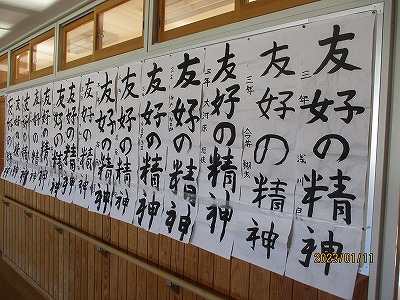 友好の精神
三年 浅川
友好の精神
三年 今井 翔太
友好の精神
三年 大河原
友好の精神
友好の精神
友好の精神
友好の精神
友好の精神
友好の精神
友好の精神
友好の精神
友好の精神
友好の精神
2023/01/11